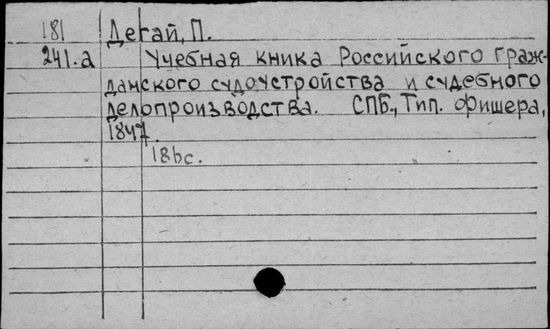 181 Дегай, П.
241.а Учебная кника Российского граж-
данского судоустройства и судебного
делопроизводства. СПБ., Тип. Фишера,
1847.
18bc.